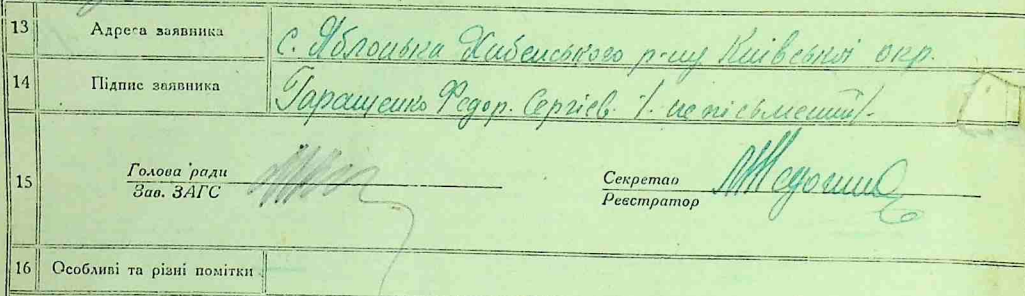 13 Адреса заявника с. Яблонька Хабенського р-ну Київської окр.
14 Підпис заявника Гаращенко Федор. Сергієв. /- непісьменний/-
15 Голова ради Секретар
Зав. ЗАГС Реєстратор
16 Особливі та різні помітки